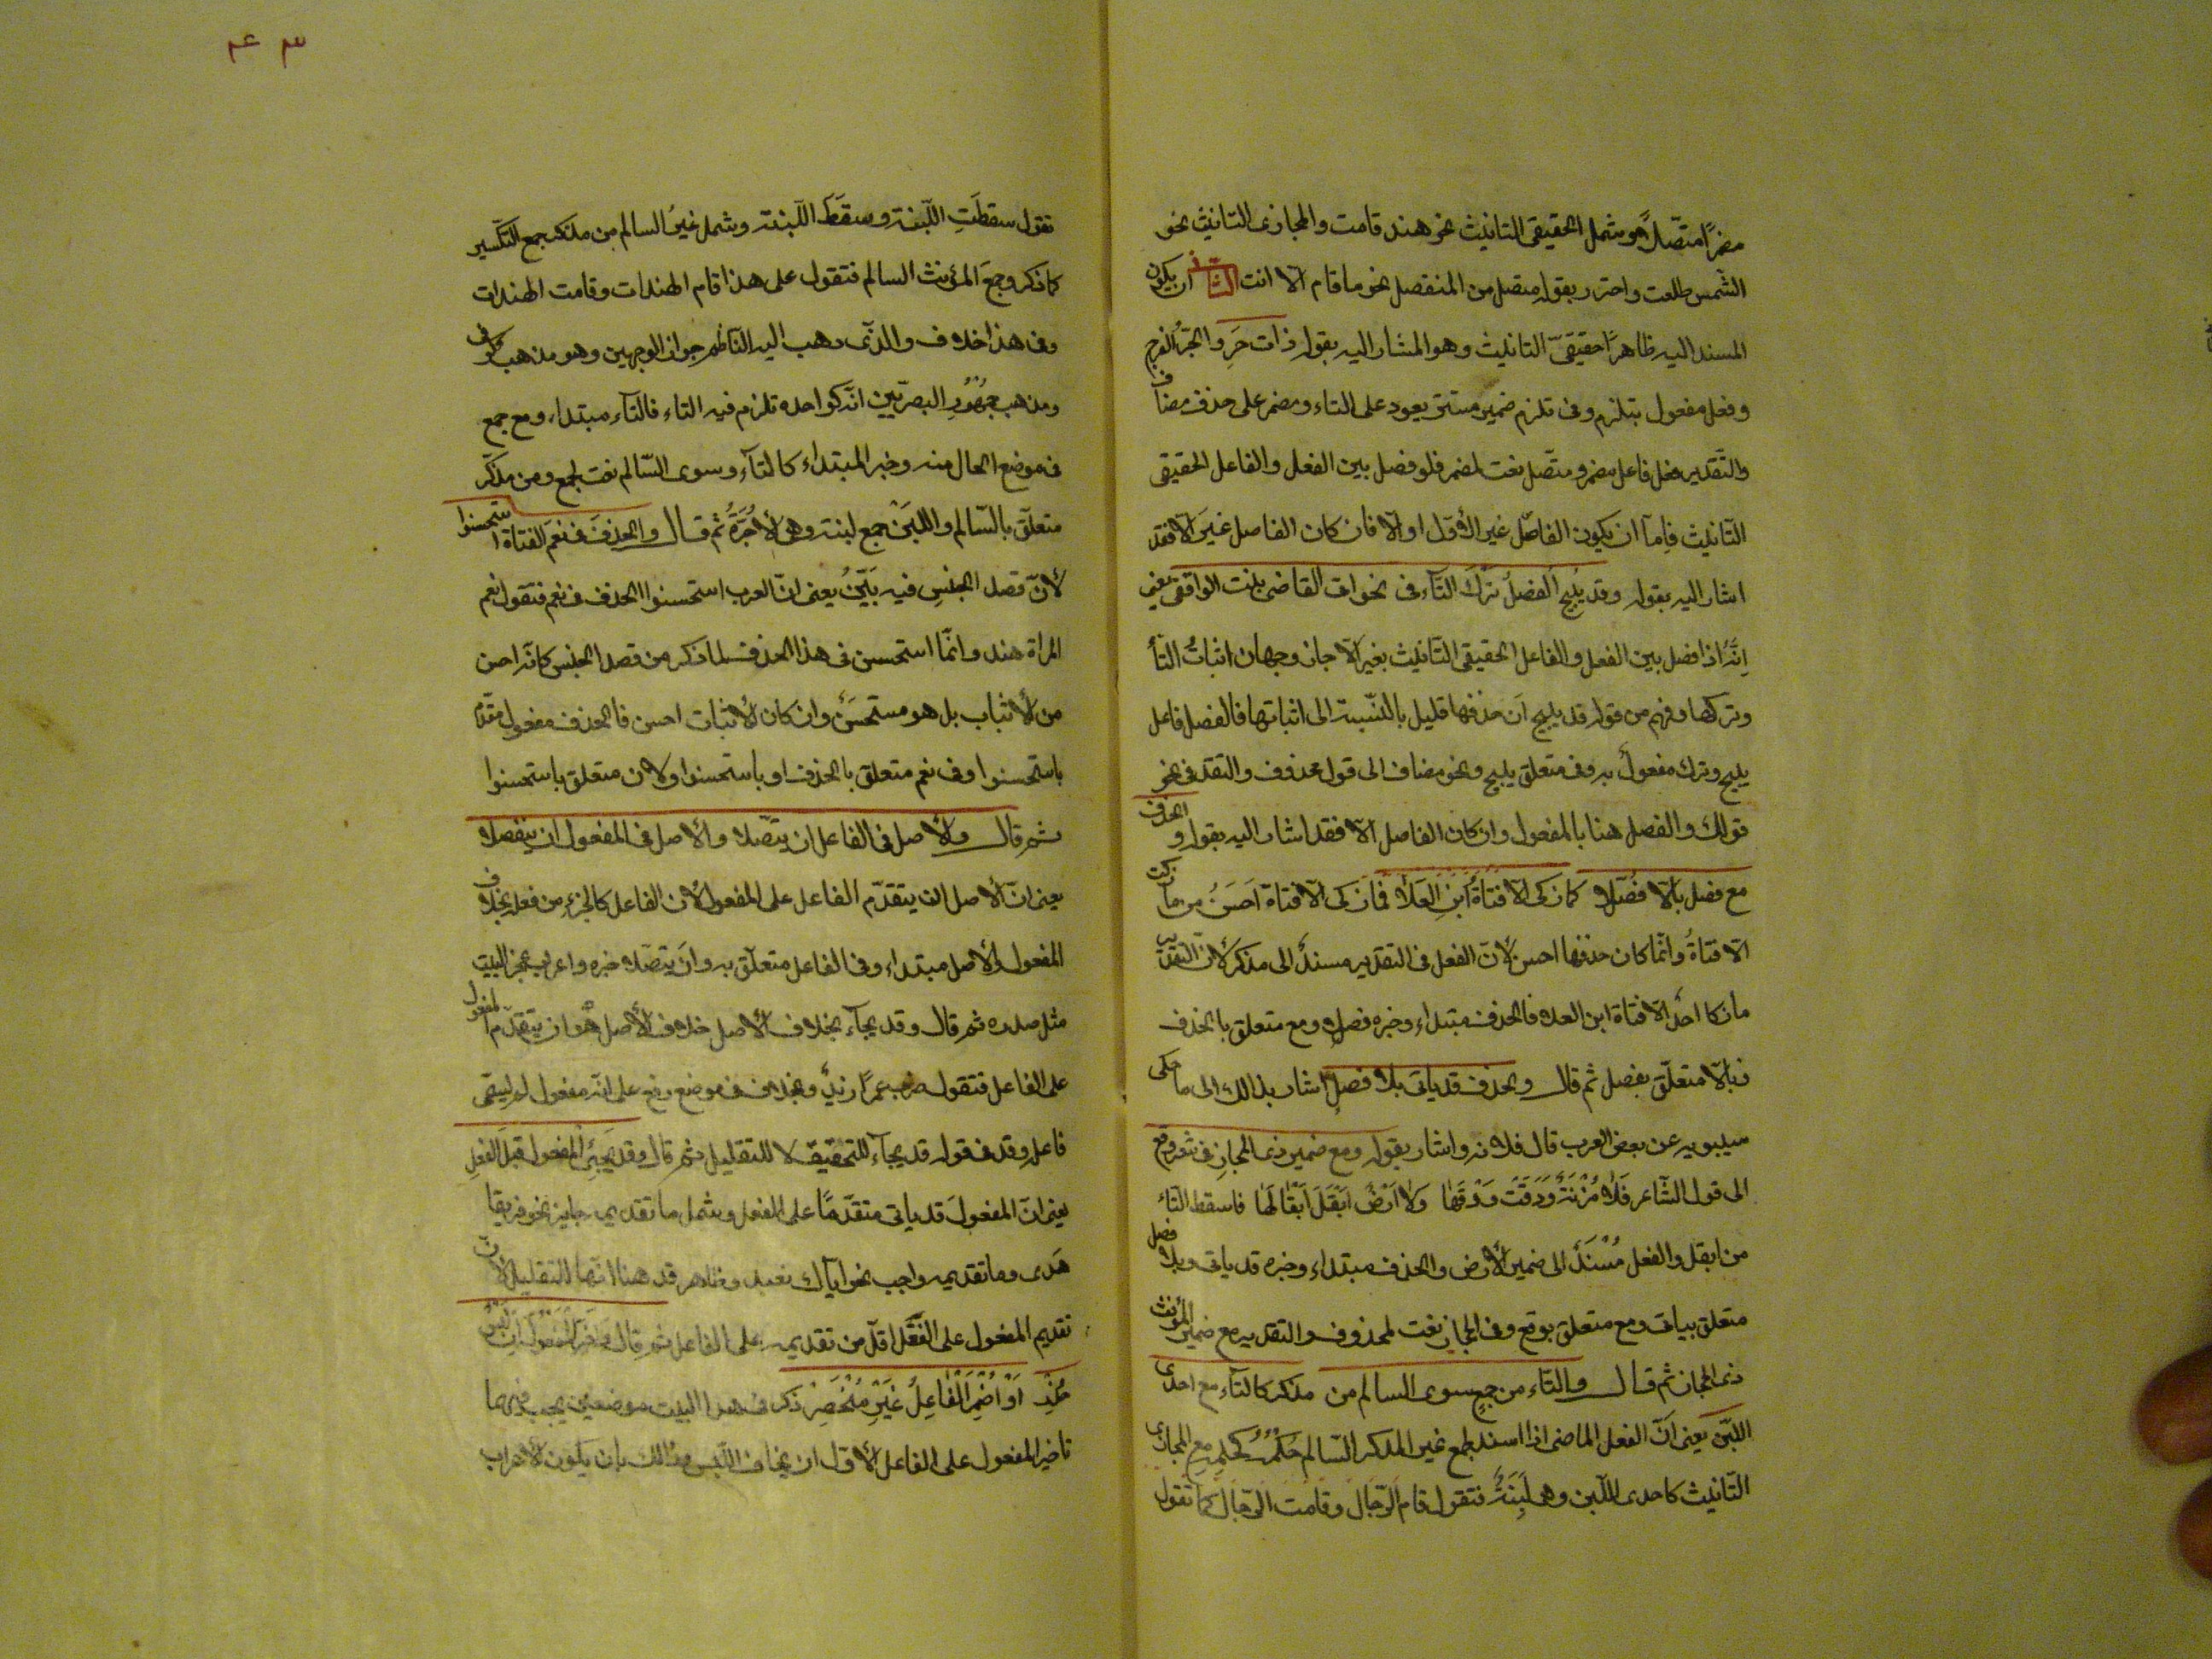 مضمرًا متّصلًا هو يشمل الحقيقى التانيث نحو هند قامت والمجازى التانيث نحو
الشمس طلعت واحترز بقوله متصل من المنفصل نحو ما قام الا انت الثانى ان يكون
المسند اليه ظاهرًا حقيقىّ التانيث وهو المشار اليه بقوله ذات حَرِ والحِرُ الفرج
وفعل مفعول بتلزم وفى تلزم ضمير مستتر يعود على التاء ومضمر على حذف مضاف
والتّقدير فعل فاعل مضمر ومتّصل نعت لمضمر فلو فصل بين الفعل والفاعل الحقيقى
التّانيث فامّا ان يكون الفاصل غير الّا اولا فان كان الفاصل غير الّا فقد
اشار اليه بقوله وقد يُبِيحُ الفصلُ تركَ التّاء فى نحو اتى القاضى بنت الواقفى يعنى
انّه اذا فصل بين الفعل والفاعل الحقيقى التّانيث بغير الّا جاز وجهان اثباتُ التّاء
وتركها وفهم من قوله قد يبيح انّ حذفها قليل بالنّسبة الى اثباتها فالفصل فاعل
يبيح وترك مفعولٌ به وفى متعلق بيبيح ونحو مضاف الى قول محذوف والتقدير فى نحو
قولك والفصل هنا بالمفعول وان كان الفاصل الّا فقد اشار اليه بقوله والحذف
مع فصل بالّا فُضّلا كما زكى الّا فتاةُ ابنِ العَلا فما زكى الّا فتاة اَحسَنُ من ما زكت
الّا فتاةُ وانّما كان حذفها احسن لانّ الفعل فى التقدير مسندٌ الى مذكر لانّ التقدير
ما زكا احدٌ الّا فتاة ابن العلا فالحذف مبتداء وخبره فضلا ومع متعلق بالحذف
وبالّا متعلّق بفصل ثم قال والحذف قد ياتى بلا فصلٍ اشار بذالك الى ما حكى
سيبويه عن بعض العرب قال فلانه واشار بقوله ومع ضمير ذى المجازِ فى شعر وقع
الى قول الشّاعر فَلا مُزْنَةٌ وَدَقَت وَدْقَها وَلا اَرْضَ اَبْقَلَ اَبْقالَها فاسقط التّاء
من ابقل والفعل مُسْنَدٌ الى ضمير الأرض والحذف مبتداء وخبره قد ياتى وبلا فصل
متعلق بياتى ومع متعلق بوقع وفى المجاز نعت لمحذوف والتقدير مع ضمير المؤنث
ذى المجاز ثم قال والتّاء من جمعٍ سوى السالم من مذكّر كالتّاء مع احدى
اللّبن يعنى انّ الفعل الماضى اذا اسند لجمع غير المذكر السّالم حكمه كحكمه مع المجازى
التّانيث كاحدى اللّبن وهى لَبِنَةٌ فتقول قام الرّجال وقامت الرّجال كما تقول
۴۳
تقول سقطَتِ اللّبنة وسقَطَ اللّبنة وشمل غيرُ السالم من مذكر جمع التكسير
كما ذكر وجمعَ المؤنث السالم فتقول على هذا قام الهندات وقامت الهندات
وفى هذا خلاف والذّى ذهب اليه النّاظم جواز الوجهين وهو مذهب كوفى
ومذهب جمهُور البصريّين انّه كواحده تلزم فيه التاء فالتّاء مبتداء ومع جمع
فى موضع الحال منه وخبر المبتداء كالتّاء وسوى السّالم نعت لجمع ومن مذكّر
متعلّق بالسّالم واللبَن جمع لبنة وهى الأجُرَّةُ ثم قال والحذفَ فى نعم الفتاة استحسنوا
لأنّ قصد الجنسِ فيه بَيّنُ يعنى انّ العرب استحسنوا الحذف فى نعم فتقول نعم
المراة هند وانّما استحسن فى هذا الحذف لما ذكر من قصد الجنس كانّه احسن
من الأثباب بل هو مستحسَنٌ وان كان الأثبات احسن فالحذف مفعول مقدّم
باستحسنوا وفى نعم متعلق بالحذف او باستحسنوا ولان متعلق باستحسنوا
ثم قال والأصل فى الفاعل ان يتّصلا والأصل فى المفعول ان ينفصلا
يعنى انّ الأصل ان يتقدّم الفاعل على المفعول لأن الفاعل كالجزء من فعله بخلاف
المفعول والأصل مبتداء وفى الفاعل متعلّق به وان يتصلا خبره واعراب عجز البيت
مثل صدره ثم قال وقد يجآء بخلاف الأصل خلاف الأصل هو ان يتقدّم المفعول
على الفاعل فتقول ضرب عمرًا زيدٌ وبخلاف فى موضع رفع على انّه مفعول لم يسمّى
فاعله وقد فى قوله قد يجآء للتحقيق لا للتقليل ثم قال وقد يجيئ المفعول قبلَ الفعلِ
يعنى انّ المفعولَ قد ياتى متقدّمًا على الفعل وشمل ما تقديمه جايز نحو فريقا
هَدى وما تقديمه واجب نحو ايّاك نعبد وظاهر قد هنا انّها للتقليل لأنّ
تقديم المفعول على الفعل اقلّ من تقديمه على الفاعل ثم قال واخّر المفعول ان لبسٌ
حُذِرْ اَوْ اُضْمِرَ الْفاعِلُ غَيْرَ مُنْحَصِرْ ذكر فى هذا البيت موضعين يجب فيهما
تاخير المفعول على الفاعل الأول ان يخاف اللّبس وذالك بان يكون الأعراب